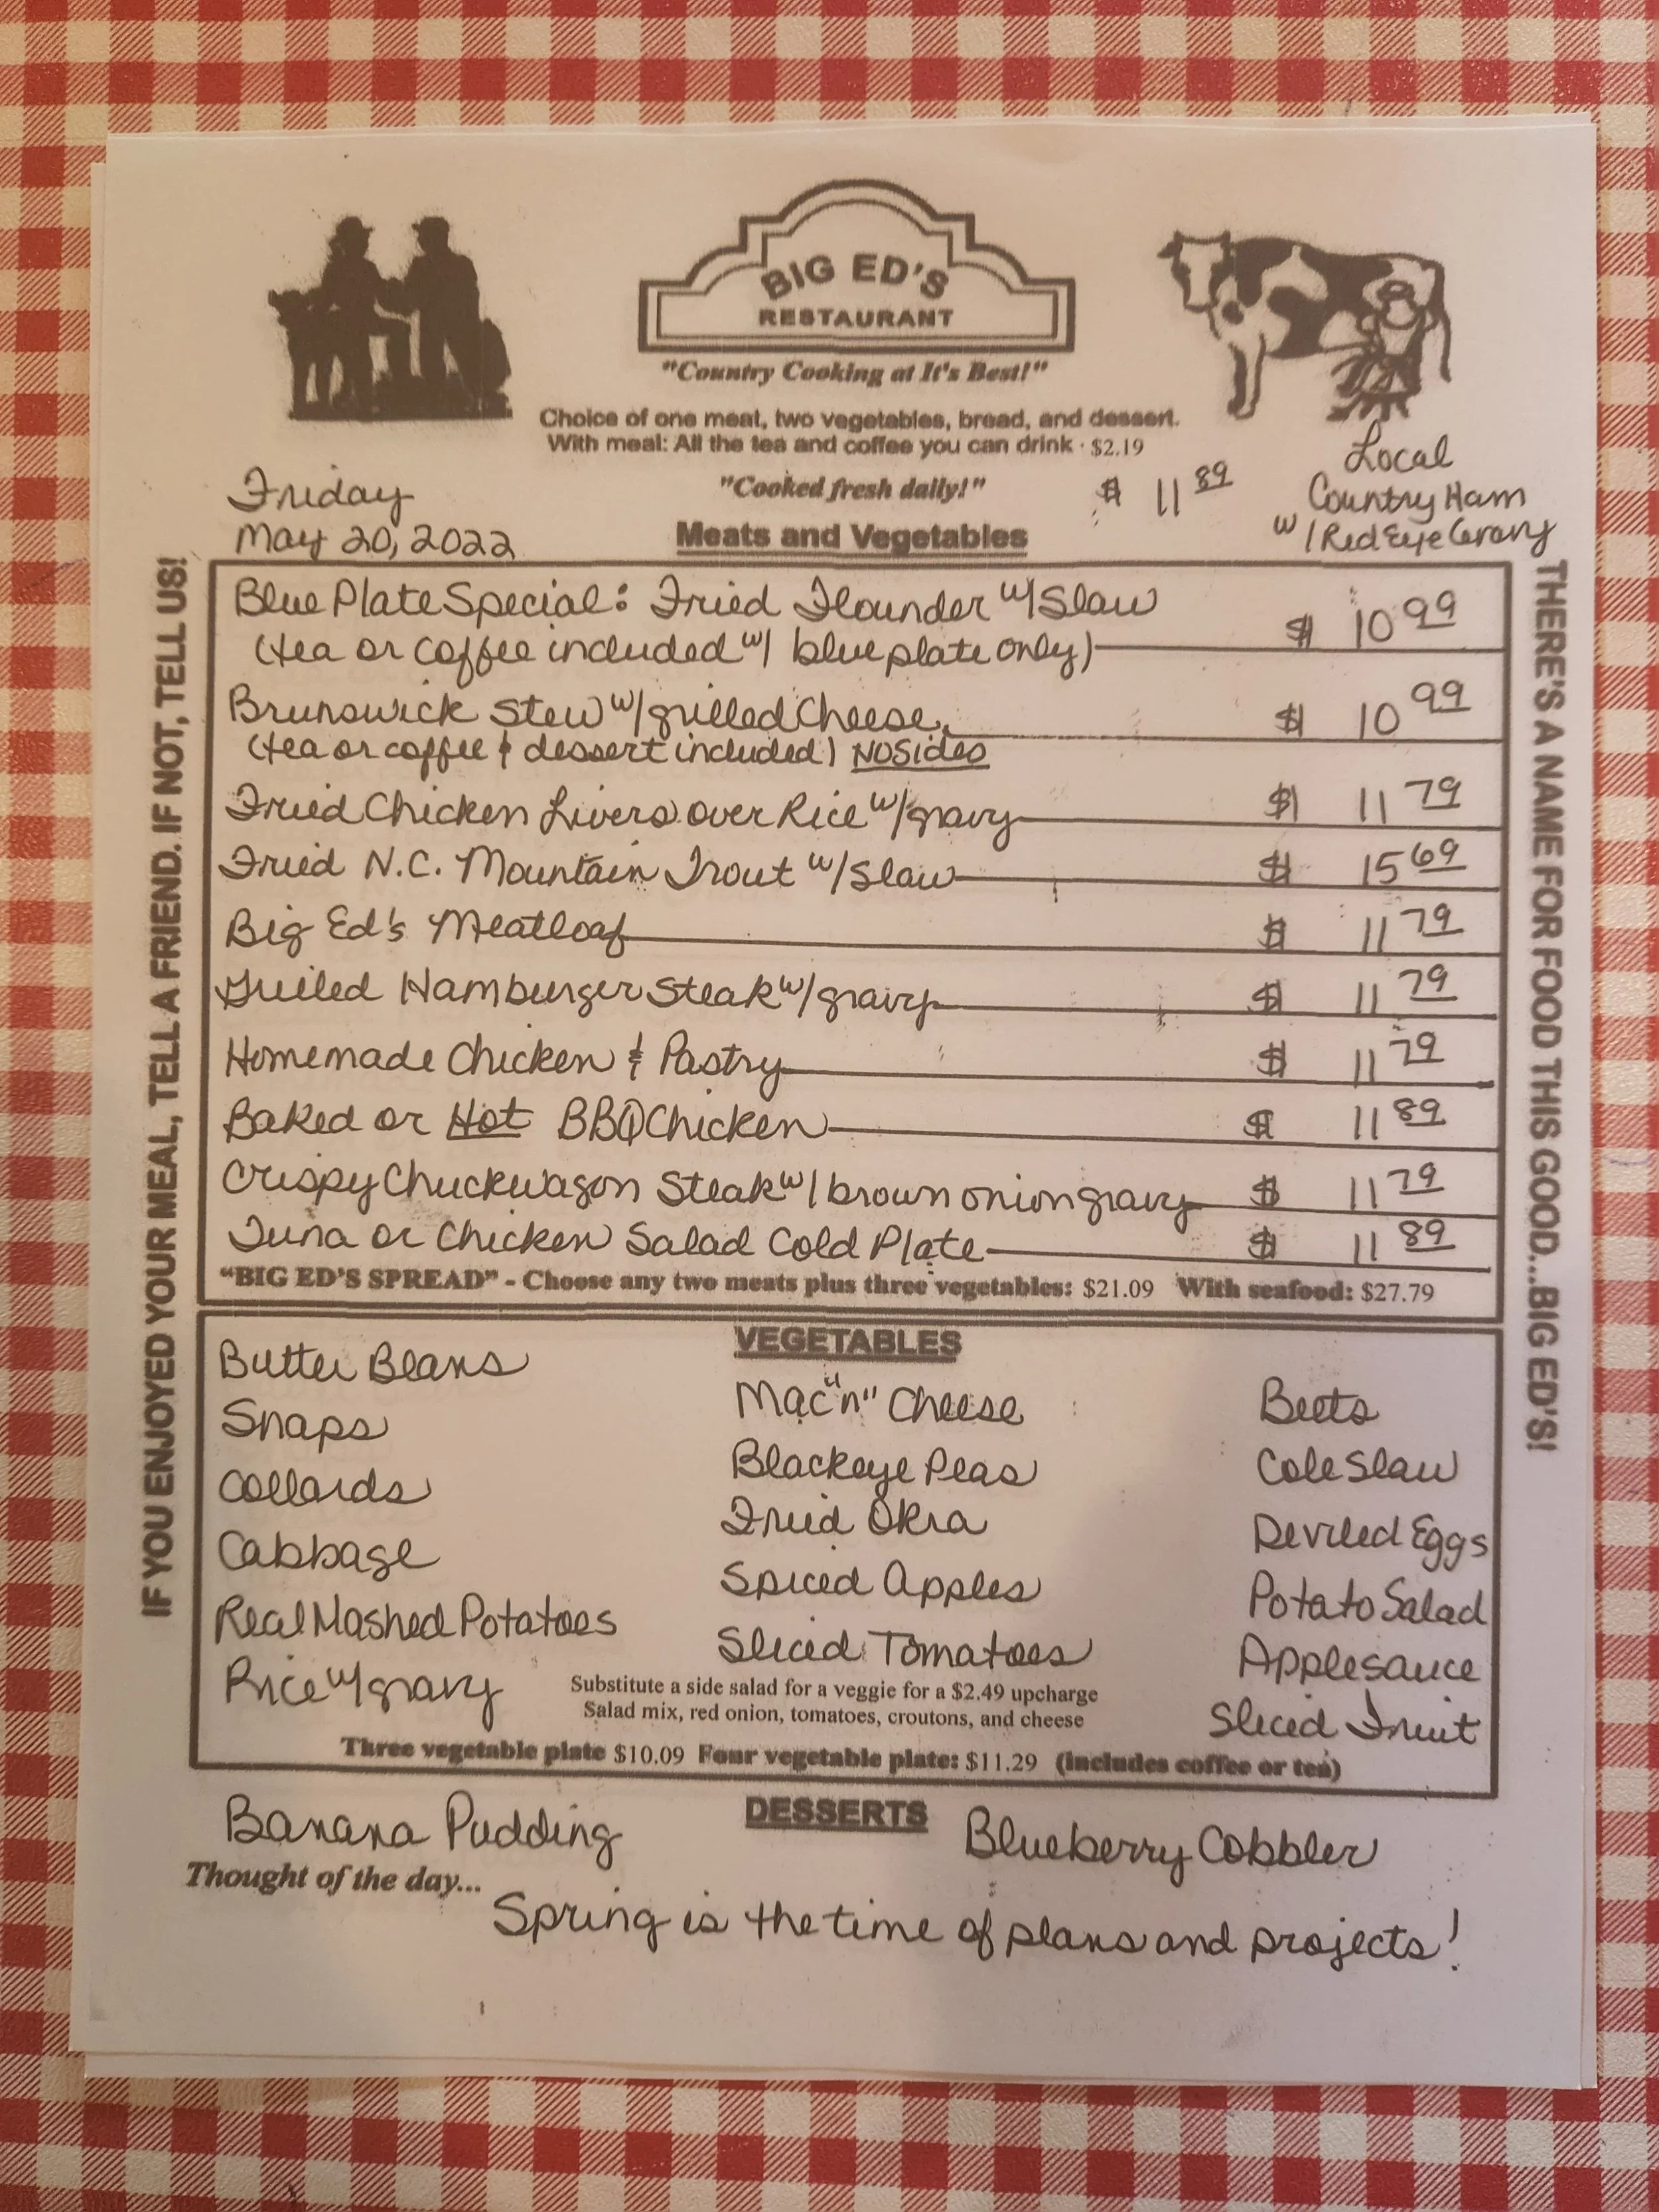 BIG ED'S
RESTAURANT
"Country Cooking at It's Best!"
Choice of one meat, two vegetables, bread, and dessert.
With meal: All the tea and coffee you can drink · $2.19
"Cooked fresh daily!"
Friday
May 20, 2022
$ 11 89
Local
Country Ham
w/Red Eye Gravy
Meats and Vegetables
IF YOU ENJOYED YOUR MEAL, TELL A FRIEND. IF NOT, TELL US!
THERE'S A NAME FOR FOOD THIS GOOD...BIG ED'S!
Blue Plate Special: Fried Flounder w/Slaw
(tea or coffee included w/ blue plate only) $ 10 99
Brunswick Stew w/grilled Cheese $ 10 99
(tea or coffee & dessert included) NO Sides
Fried Chicken Livers over Rice w/gravy $ 11 79
Fried N.C. Mountain Trout w/Slaw $ 15 69
Big Ed's Meatloaf $ 11 79
Grilled Hamburger Steak w/gravy $ 11 79
Homemade Chicken & Pastry $ 11 79
Baked or Hot BBQ Chicken $ 11 89
Crispy Chuckwagon Steak w/brown onion gravy $ 11 79
Tuna or Chicken Salad Cold Plate $ 11 89
"BIG ED'S SPREAD" - Choose any two meats plus three vegetables: $21.09 With seafood: $27.79
VEGETABLES
Butter Beans
Snaps
Collards
Cabbage
Real Mashed Potatoes
Rice w/gravy
Mac "n" Cheese
Blackeye Peas
Fried Okra
Spiced Apples
Sliced Tomatoes
Beets
Cole Slaw
Deviled Eggs
Potato Salad
Applesauce
Sliced Fruit
Substitute a side salad for a veggie for a $2.49 upcharge
Salad mix, red onion, tomatoes, croutons, and cheese
Three vegetable plate $10.09 Four vegetable plate: $11.29 (includes coffee or tea)
DESSERTS
Banana Pudding
Blueberry Cobbler
Thought of the day...
Spring is the time of plans and projects!